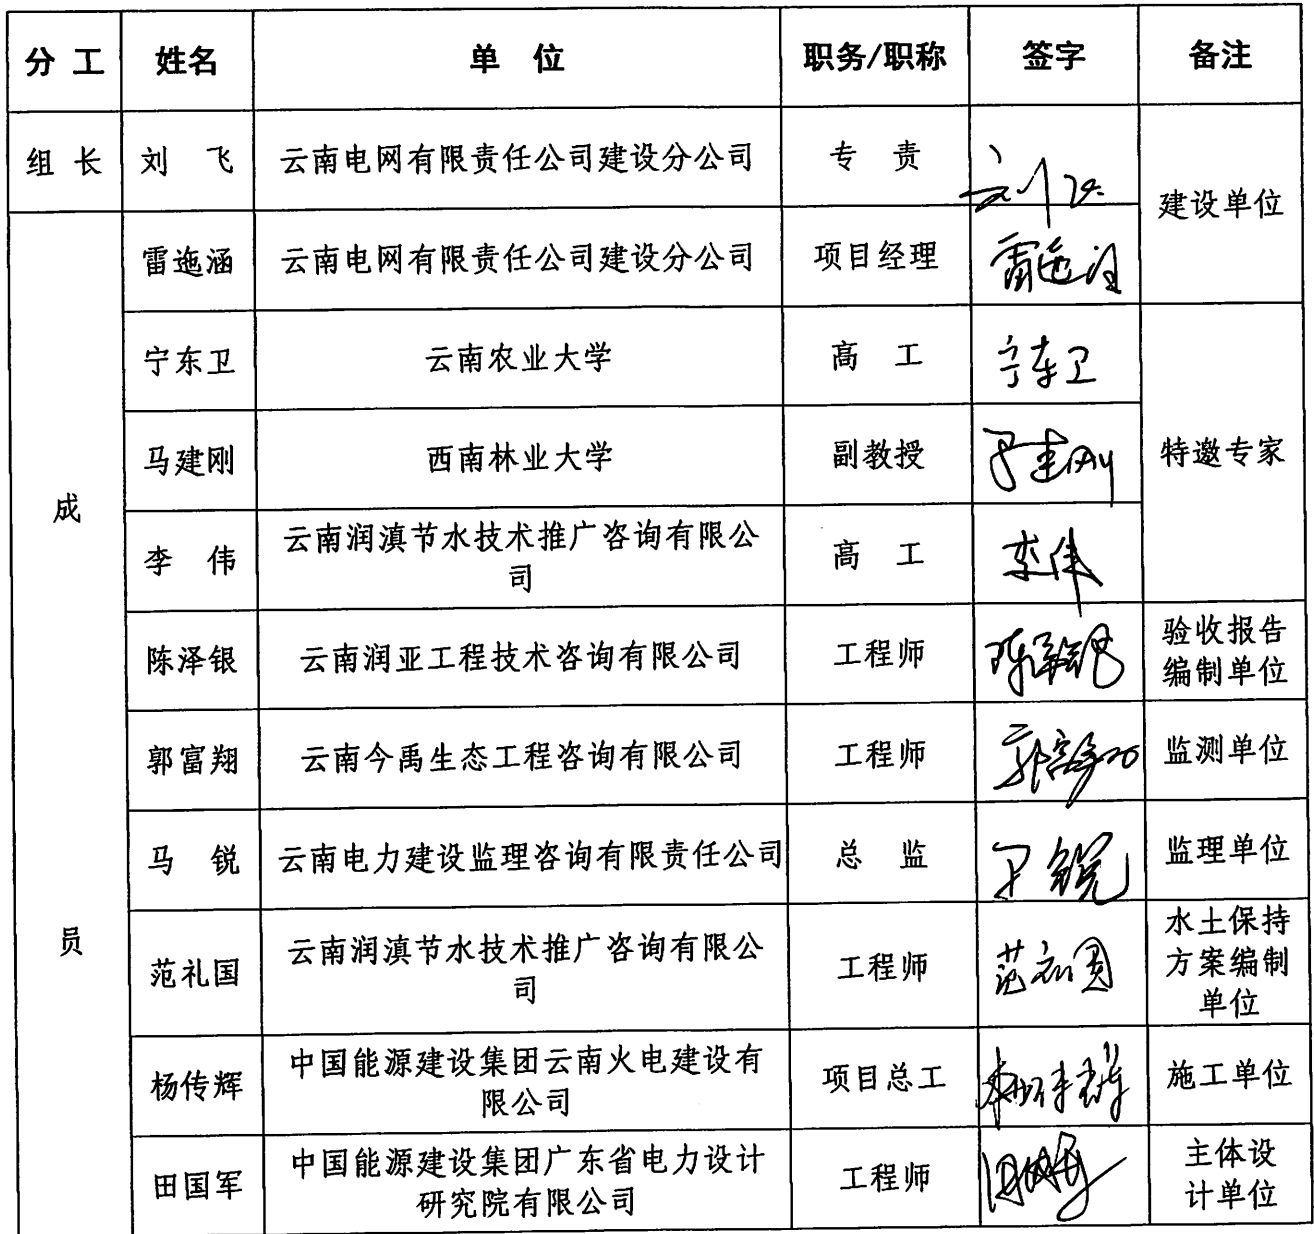 分 工 姓名 单 位 职务/职称 签字 备注
组 长 刘 飞 云南电网有限责任公司建设分公司 专 责 刘飞 建设单位
雷迤涵 云南电网有限责任公司建设分公司 项目经理 雷迤涵
宁东卫 云南农业大学 高 工 宁东卫
马建刚 西南林业大学 副教授 马建刚 特邀专家
成
李 伟 云南润滇节水技术推广咨询有限公 高 工 李伟
司
陈泽银 云南润亚工程技术咨询有限公司 工程师 陈泽银 验收报告
编制单位
郭富翔 云南今禹生态工程咨询有限公司 工程师 郭富翔 监测单位
马 锐 云南电力建设监理咨询有限责任公司 总 监 马锐 监理单位
员
范礼国 云南润滇节水技术推广咨询有限公 工程师 范礼国 水土保持
司 方案编制
单位
杨传辉 中国能源建设集团云南火电建设有 项目总工 杨传辉 施工单位
限公司
田国军 中国能源建设集团广东省电力设计 工程师 田国军 主体设
研究院有限公司 计单位